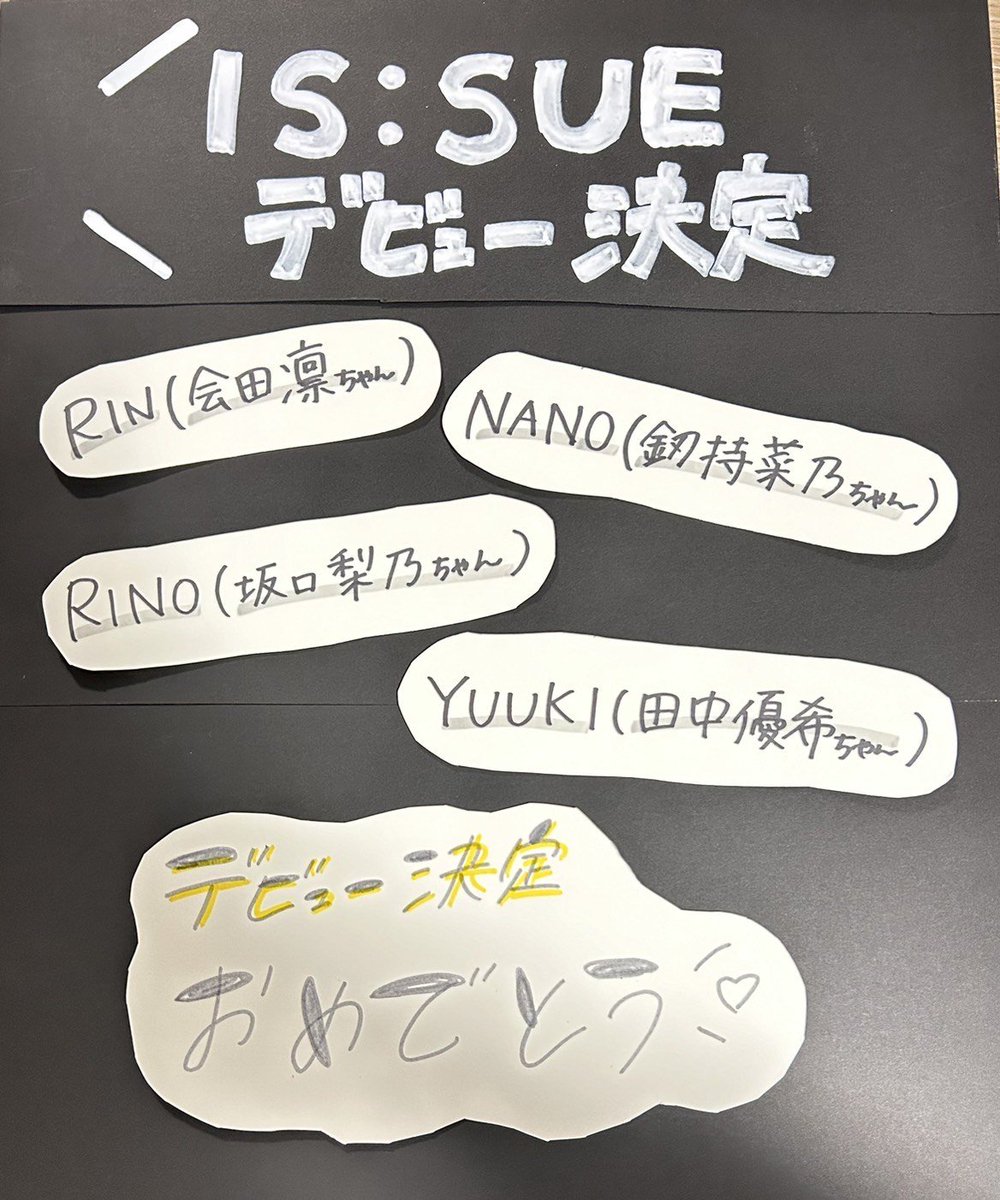 IS:SUE
デビュー決定
RIN(会田凛ちゃん)
NANO(釼持菜乃ちゃん)
RINO(坂口梨乃ちゃん)
YUUKI(田中優希ちゃん)
デビュー決定
おめでとう♡